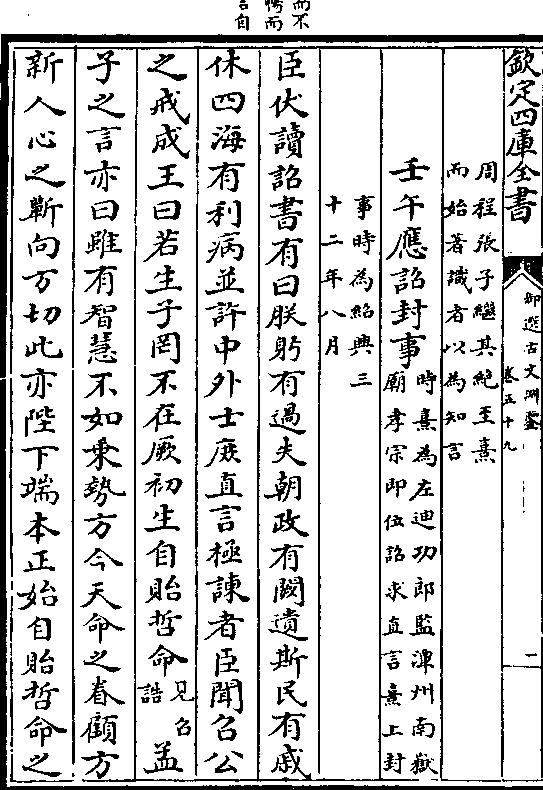 而不
惰而
言自
欽定四庫全書
御選古文淵鑒
卷五十九
一
周程張子繼其絶至熹
而始著識者以為知言
壬午應詔封事時熹為左迪功郎監潭州南嶽
廟孝宗即位詔求直言熹上封
事時為紹興三
十二年八月
臣伏讀詔書有曰朕躬有過失朝政有闕遺斯民有戚
休四海有利病並許中外士庶直言極諫者臣聞召公
之戒成王曰若生子罔不在厥初生自貽哲命見召
誥孟
子之言亦曰雖有智慧不如乘勢方今天命之眷顧方
新人心之蘄向方切此亦陛下端本正始自貽哲命之